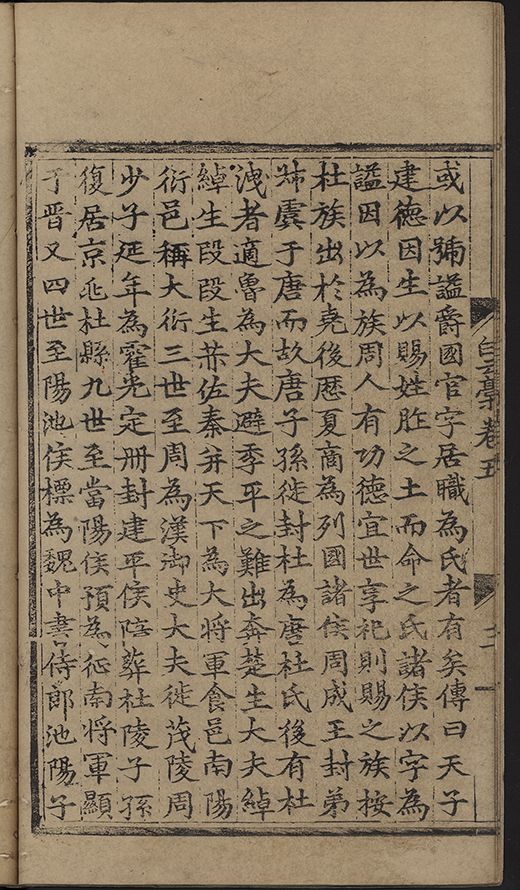 或以號謚爵國官字居職為氏者有矣傳曰天子
建德因生以賜姓胙之土而命之氏諸侯以字為
謚因以為族周人有功德宜世享祀則賜之族按
杜族出於堯後歴夏商為列國諸侯周成王封弟
叔虞于唐而故唐子孫徙封杜為唐杜氏後有杜
洩者適魯為大夫避季平之難出奔楚生大夫綽
綽生段段生赫佐秦并天下為大将軍食邑南陽
衍邑稱大衍三世至周為漢御史大夫徙茂陵周
少子延年為霍光定冊封建平侯陪葬杜陵子孫
復居京兆杜縣九世至當陽侯預為征南将軍顯
于晋又四世至陽池侯標為魏中書侍郎池陽子
白雲藁卷五